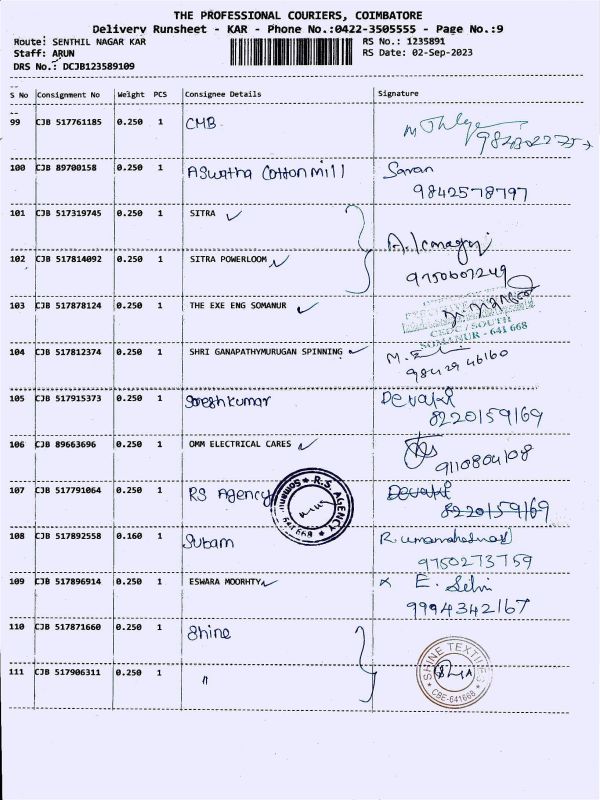 THE PROFESSIONAL COURIERS, COIMBATORE
Delivery Runsheet - KAR - Phone No.:0422-3505555 - Page No.:9
Route: SENTHIL NAGAR KAR RS No.: 1235891
Staff: ARUN RS Date: 02-Sep-2023
DRS No.: DCJB123589109
S No Consignment No Weight PCS Consignee Details Signature
99 CJB 517761185 0.250 1 CMB
100 CJB 89700158 0.250 1 Aswatha Cotton mill Saran
9842578797
101 CJB 517319745 0.250 1 SITRA
102 CJB 517814092 0.250 1 SITRA POWERLOOM
9750607249
103 CJB 517878124 0.250 1 THE EXE ENG SOMANUR
CEDC/SOUTH
SOMANUR - 641 668
104 CJB 517812374 0.250 1 SHRI GANAPATHYMURUGAN SPINNING M.
98429 46160
105 CJB 517915373 0.250 1 Sureshkumar Devaki
8220159169
106 CJB 89663696 0.250 1 OMM ELECTRICAL CARES
9110804108
107 CJB 517791064 0.250 1 RS Agency Devaki
R.S. AGENCY
641 668
8220159169
108 CJB 517892558 0.160 1 Subam
9750273759
109 CJB 517896914 0.250 1 ESWARA MOORHTY x E. Selvi
9994342167
110 CJB 517871660 0.250 1 Shine
SHINE TEXTILES
CBE-641668
111 CJB 517906311 0.250 1 "